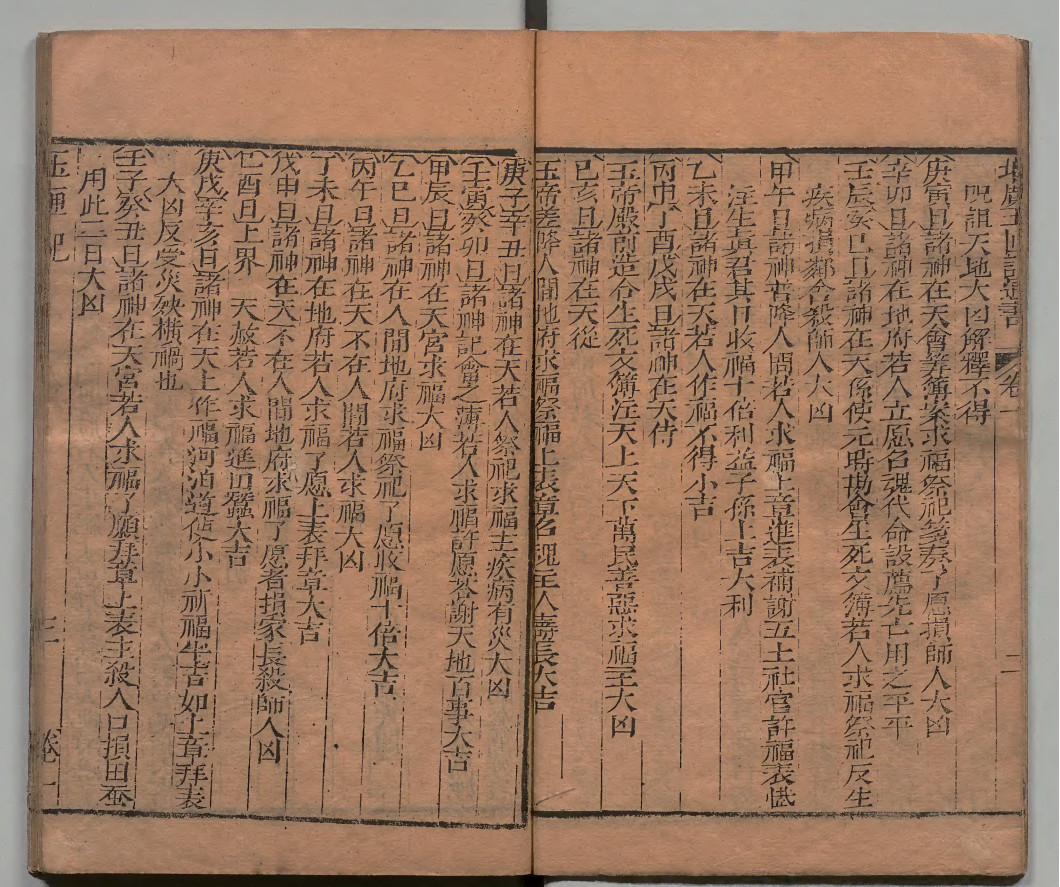 卷一 二
咒詛天地大凶解釋不得
庚寅日諸神在天會筭簿案求福祭祀箋奏了愿損師人大凶
辛卯日諸神在地府若人立愿名魂代命設薦先亡用之平平
壬辰癸巳日諸神在天係使元時勘會生死文簿若人求福祭祀反生
疾病損鄰舍殺師人大凶
甲午日諸神普降人間若人求福上章進表補謝五土社官許福表懺
注生真君其日收福十倍利益子孫上吉大利
乙未日諸神在天若人作福不得小吉
丙申丁酉戊戌日諸神在天侍
玉帝殿前造合生死文簿注天上天下萬民善惡求福至大凶
己亥日諸神在天從
玉帝差降人間地府求福祭福上表章名魂主人壽長大吉
庚子辛丑日諸神在天若人祭祀求福主疾病有災大凶
壬寅癸卯日諸神記會之薄若人求福許愿答謝天地百事大吉
甲辰日諸神在天宮求福大凶
乙巳日諸神在人間地府求福祭祀了愿收福十倍大吉
丙午日諸神在天不在人間若人求福大凶
丁未日諸神在地府若人求福了愿上表拜章大吉
戊申日諸神在天不在人間地府求福了愿者損家長殺師人凶
己酉日上界天赦若人求福進田蠶大吉
庚戌辛亥日諸神在天上作福河泊道使小小祈福生吉如上章拜表
大凶反受災殃橫禍也
壬子癸丑日諸神在天宮若人求福了願拜章上表主殺人口損田蚕
用此二日大凶
玉匣記 三 卷一